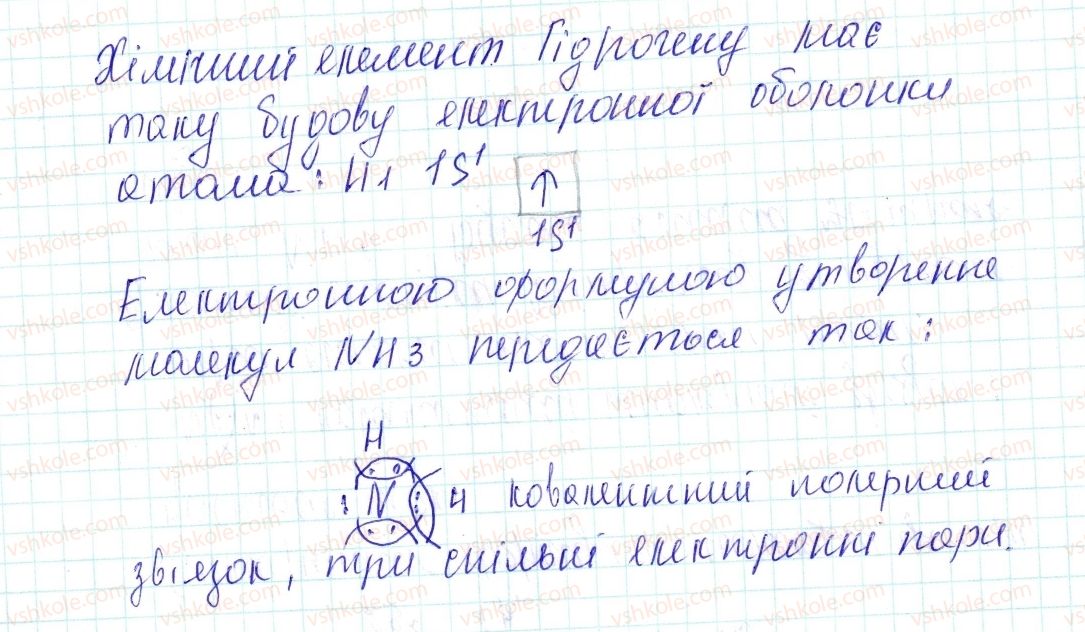 Хімічний елемент Гідрогену має
таку будову електронної оболонки
атома: H1 1S¹ ↑
1S¹
Електронною формулою утворення
молекул NH3 передається так:
H
: N : H ковалентний полярний
зв'язок, три спільні електронні пари.